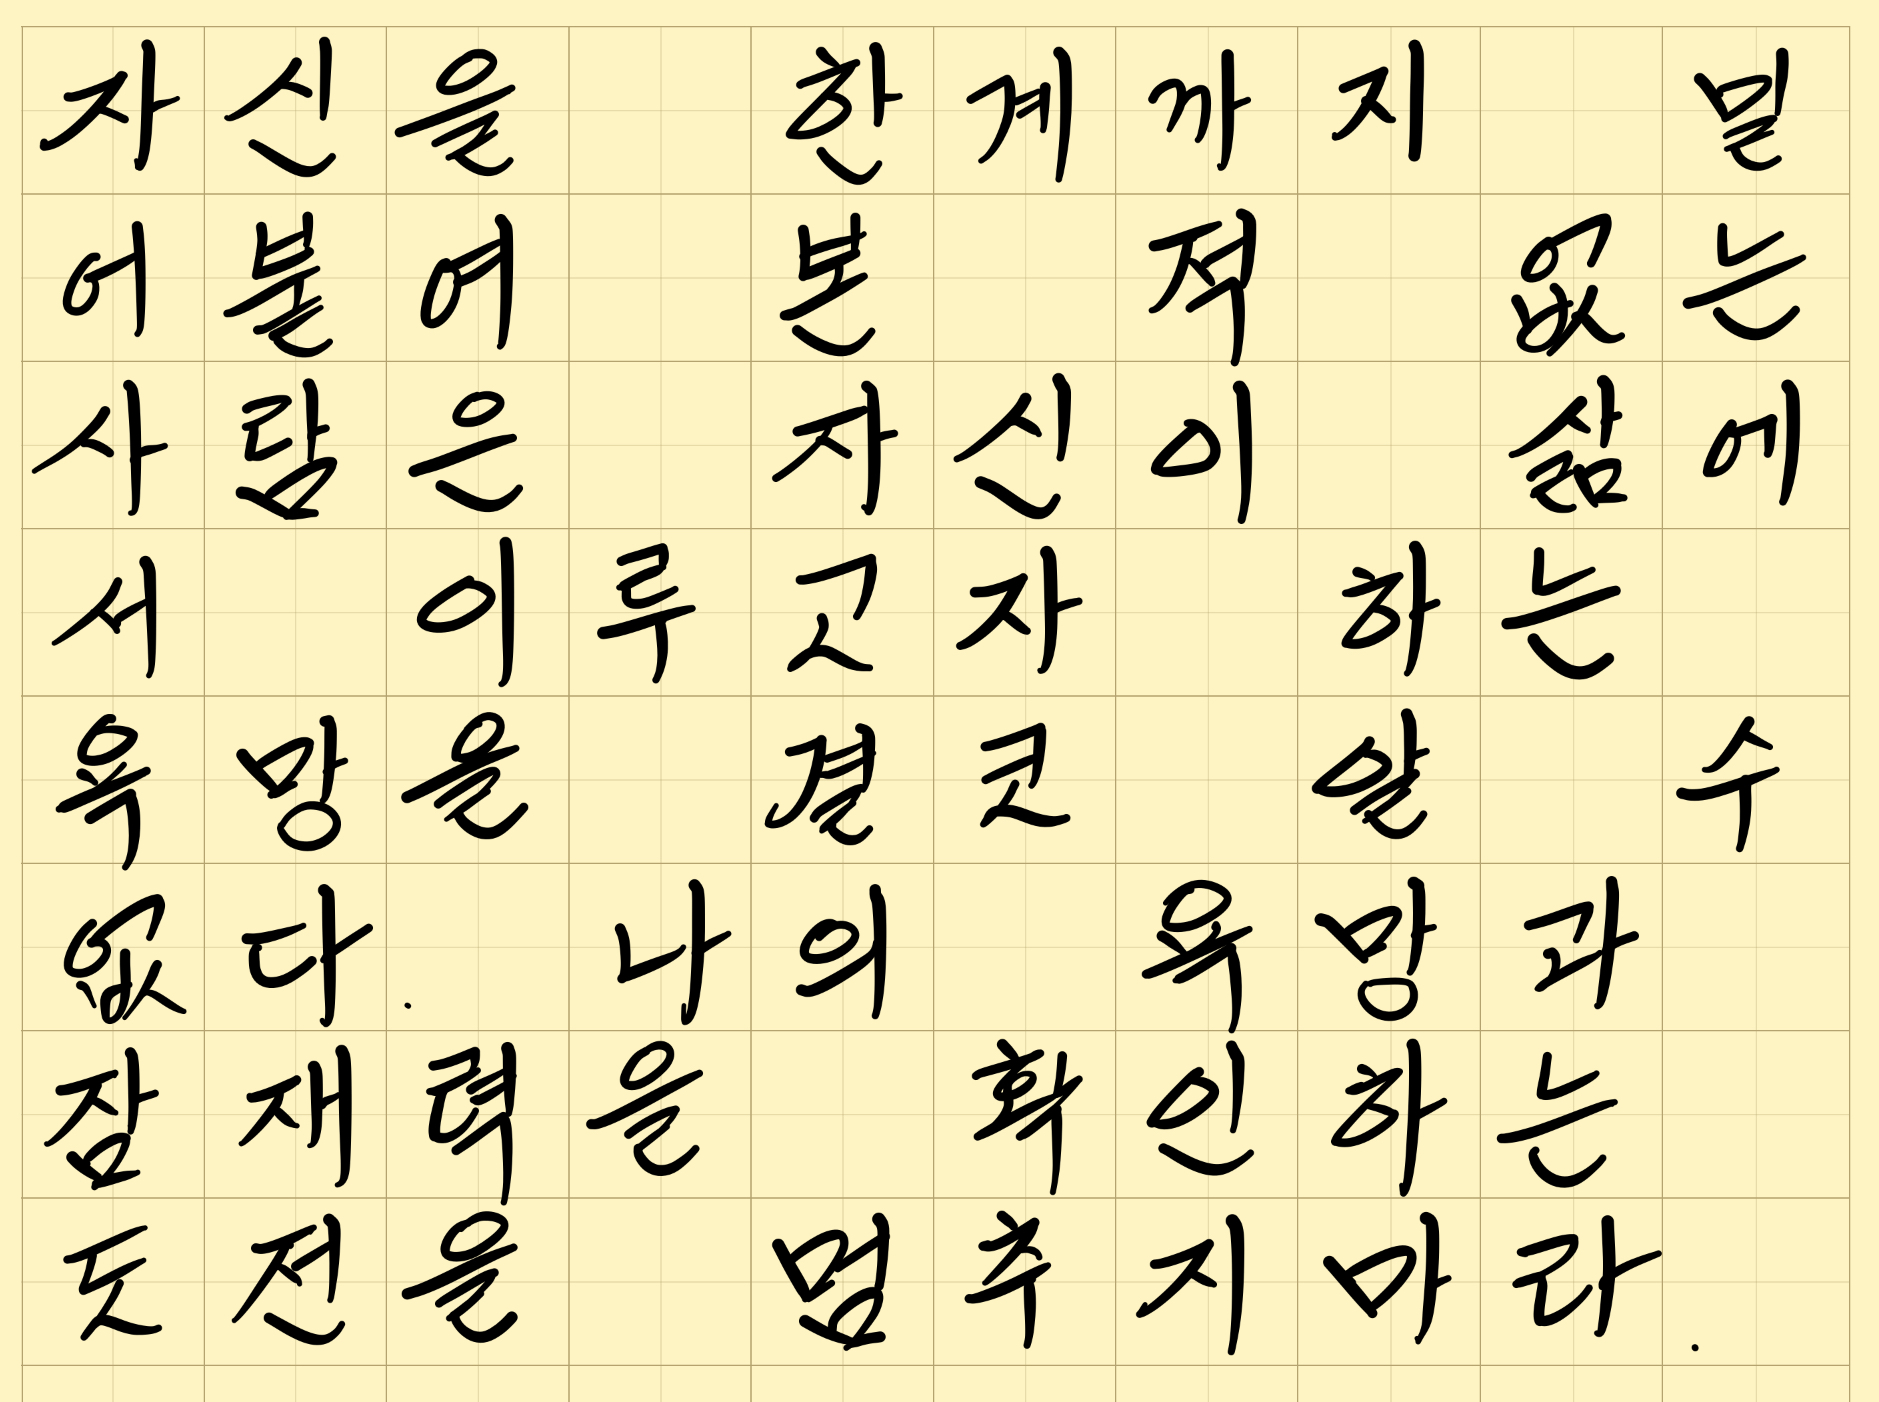 자신을 한계까지 밀
어붙여 본 적 없는
사람은 자신이 삶에
서 이루고자 하는
욕망을 결코 알 수
없다. 나의 욕망과
잠재력을 확인하는
도전을 멈추지 마라.